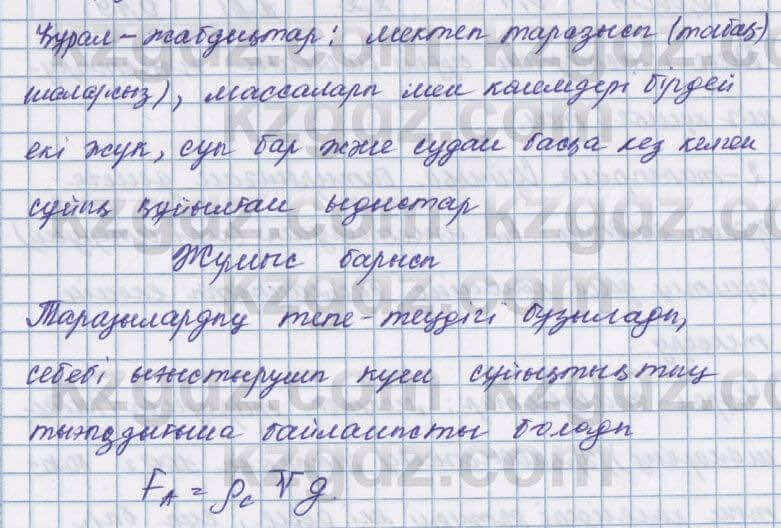 Құрал-жабдықтар: мектеп таразысы (табақ
шаларсыз), массалары мен көлемдері бірдей
екі жүк, суы бар және судан басқа кез келген
сұйық құйылған ыдыстар
Жұмыс барысы
Таразылардың тепе-теңдігі бұзылады,
себебі ығыстырушы күш сұйықтықтың
тығыздығына байланысты болады
F_A = ρ_c V g.
kzgdz.com